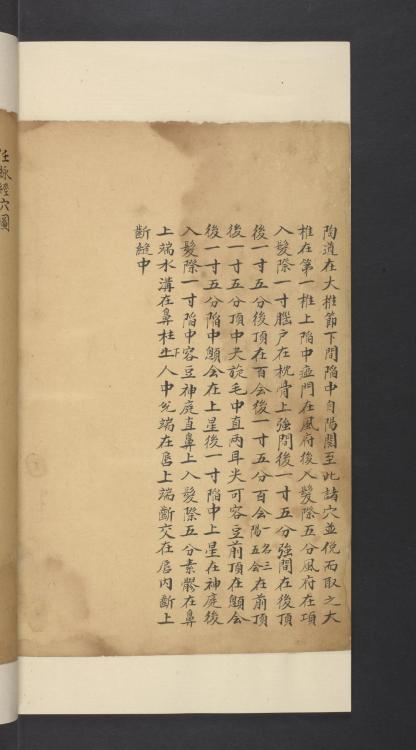 陶道在大椎節下間陷中自陽關至此諸穴並俛而取之大
椎在第一椎上陷中瘂門在風府後入髮際五分風府在項
入髮際一寸腦户在枕骨上強間後一寸五分強間在後頂
後一寸五分後頂在百会後一寸五分百会一名三陽五会在前頂
後一寸五分頂中央旋毛中直两耳尖可容豆前頂在顖会
後一寸五分陷中顖会在上星後一寸陷中上星在神庭後
入髮際一寸陷中容豆神庭直鼻上入髮際五分素髎在鼻
上端水溝在鼻柱下人中兊端在唇上端齗交在唇内齗上
齗縫中
任脉經穴圖